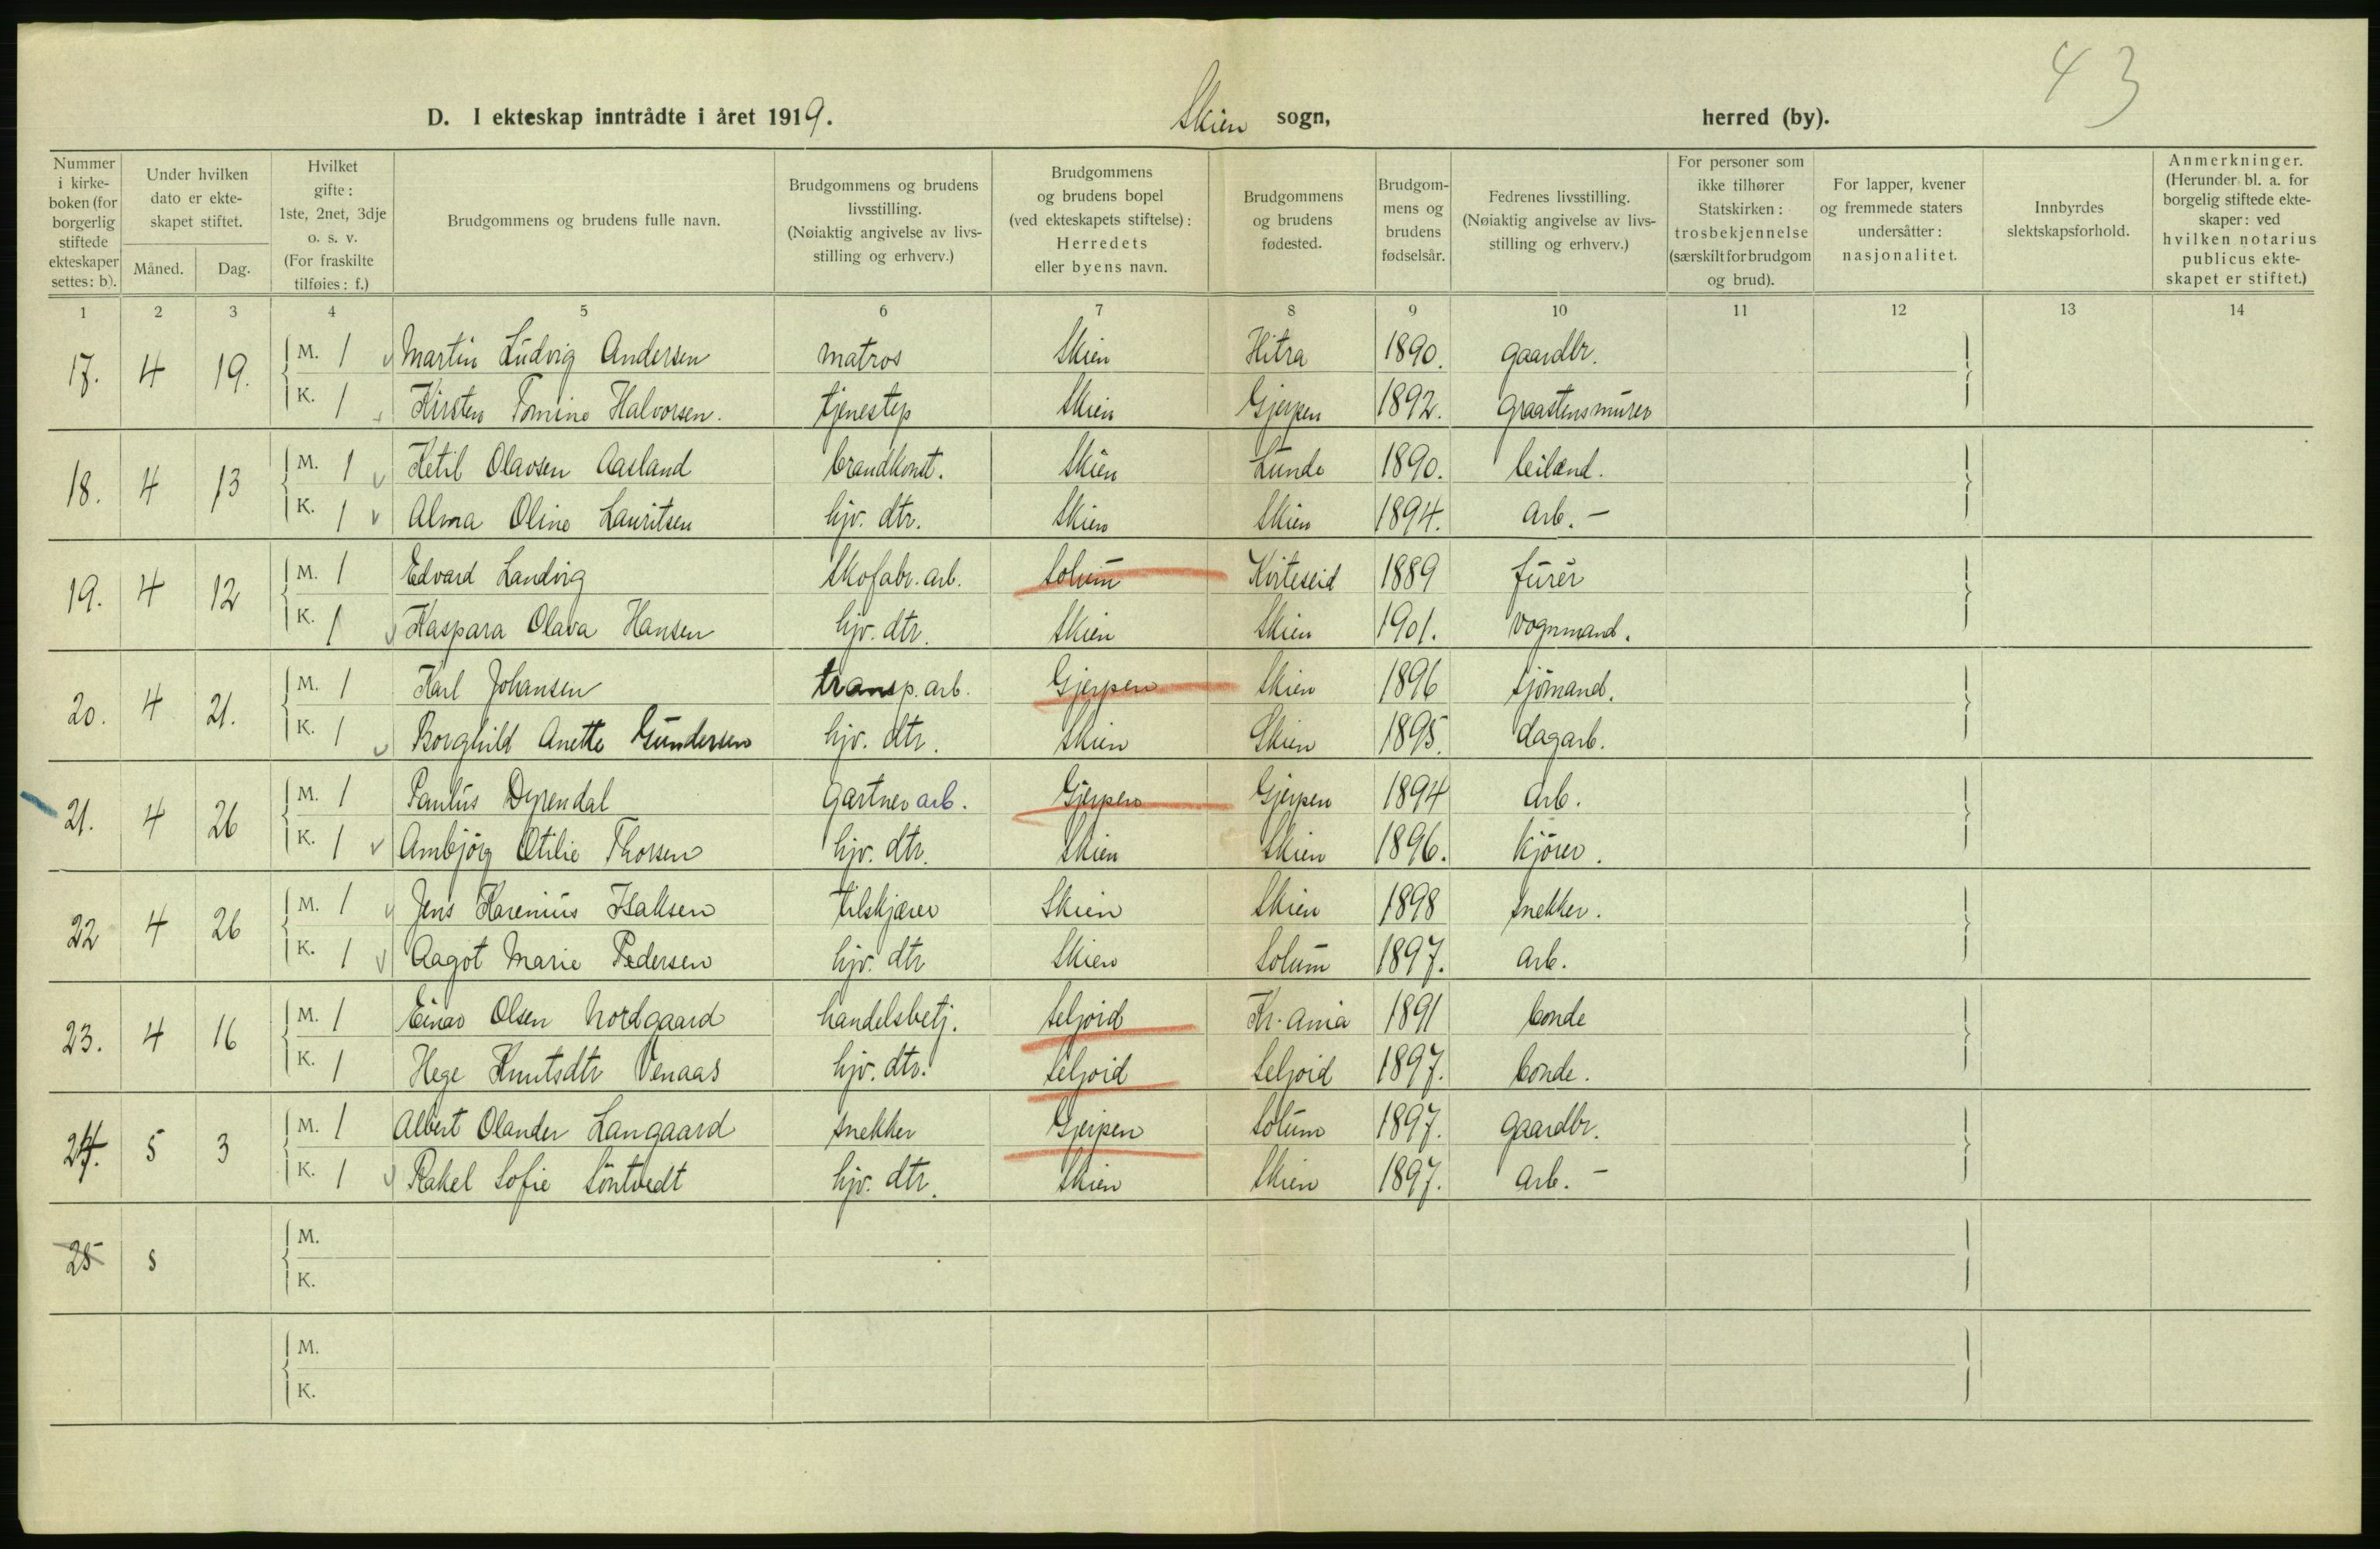 43
D. I ekteskap inntrådte i året 1919. Skien sogn, herred (by).
Nummer i kirkeboken (for borgerlig stiftede ekteskaper settes: b).
Under hvilken dato er ekteskapet stiftet.
Måned. Dag.
Hvilket gifte: 1ste, 2net, 3dje o. s. v. (For fraskilte tilføies: f.)
Brudgommens og brudens fulle navn.
Brudgommens og brudens livsstilling. (Nøiaktig angivelse av livsstilling og erhverv.)
Brudgommens og brudens bopel (ved ekteskapets stiftelse): Herredets eller byens navn.
Brudgommens og brudens fødested.
Brudgommens og brudens fødselsår.
Fedrenes livsstilling. (Nøiaktig angivelse av livsstilling og erhverv.)
For personer som ikke tilhører Statskirken: trosbekjennelse (særskilt for brudgom og brud).
For lapper, kvener og fremmede staters undersåtter: nasjonalitet.
Innbyrdes slektskapsforhold.
Anmerkninger. (Herunder bl. a. for borgelig stiftede ekteskaper: ved hvilken notarius publicus ekteskapet er stiftet.)
1 2 3 4 5 6 7 8 9 10 11 12 13 14
17. 4 19. M. 1 Martin Ludvig Andersen matros Skien Hitra 1890. gaardbr.
K. 1 Kirsten Tomine Halvorsen. tjenestep Skien Gjerpen 1892. graastensmurer
18. 4 13 M. 1 Ketil Olavsen Aasland brandkonst. Skien Lunde 1890. leilænd.
K. 1 Alma Oline Lauritsen hjv. dtr. Skien Skien 1894. arb. -
19. 4 12 M. 1 Edvard Landvig Skofabr. arb. Solum Kviteseid 1889 furér
K. 1 Kaspara Olava Hansen hjv. dtr. Skien Skien 1901. vognmand.
20. 4 21. M. 1 Karl Johansen transp. arb. Gjerpen Skien 1896 sjømand.
K. 1 Borghild Anette Gundersen hjv. dtr. Skien Skien 1895. dagarb.
21. 4 26 M. 1 Paulus Dyrendal Gartner arb. Gjerpen Gjerpen 1894 arb.
K. 1 Ambjörg Otilie Thorsen hjv. dtr. Skien Skien 1896. kjörer.
22 4 26 M. 1 Jens Karenius Isaksen tilskjærer Skien Skien 1898 snekker.
K. 1 Aagot Marie Pedersen hjv. dtr Skien Solum 1897. arb.
23. 4 16 M. 1 Einar Olsen Nordgaard handelsbetj. Seljord Kr.ania 1891 bonde
K. 1 Hege Knutsdtr Venaas hjv. dtr. Seljord Seljord 1897. bonde.
24. 5 3 M. 1 Albert Olander Langaard snekker Gjerpen Solum 1897. gaardbr.
K. 1 Rakel Sofie Söntvedt hjv. dtr. Skien Skien 1897. arb. -
25 5 M.
K.
M.
K.